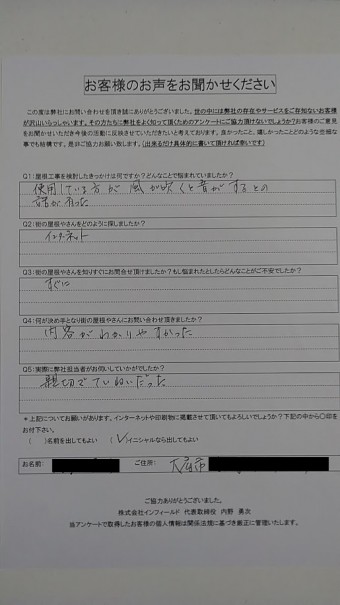 お客様のお声をお聞かせください
この度は弊社にお問い合わせを頂き誠にありがとうございました。世の中には弊社の存在やサービスをご存知ないお客様
が沢山いらっしゃいます。その方たちに弊社をよく知って頂くためのアンケートにご協力頂けないでしょうか?お客様のご意見
をお聞かせいただき今後の活動に反映させていただきたいと考えております。良かったこと、嬉しかったことどのような些細な
事でも結構です。是非ご協力お願い致します。(出来るだけ具体的に書いて頂ければ幸いです)
Q1:屋根工事を検討したきっかけは何ですか?どんなことで悩まれていましたか?
使用している方が風が吹くと音がするとの
話があった
Q2:街の屋根やさんをどのように探しましたか?
インターネット
Q3:街の屋根やさんを知りすぐにお問合せ頂けますか?もし悩まれたとしたらどんなことがご不安でしたか?
すぐに
Q4:何が決め手となり街の屋根やさんにお問い合わせ頂きましたか?
内容がわかりやすかった
Q5:実際に弊社担当者がお伺いしていかがでしたか?
親切でていねいだった
*上記についてお願いがあります。インターネットや印刷物に掲載させて頂いてもよろしいでしょうか?下記の中から〇印を
お付下さい。
( )名前を出してもよい (✓)イニシャルなら出してもよい
お名前: ご住所:
ご協力ありがとうございました。
株式会社インフィールド 代表取締役 内野 勇次
当アンケートで取得したお客様の個人情報は関係法規に基づき厳正に管理いたします。